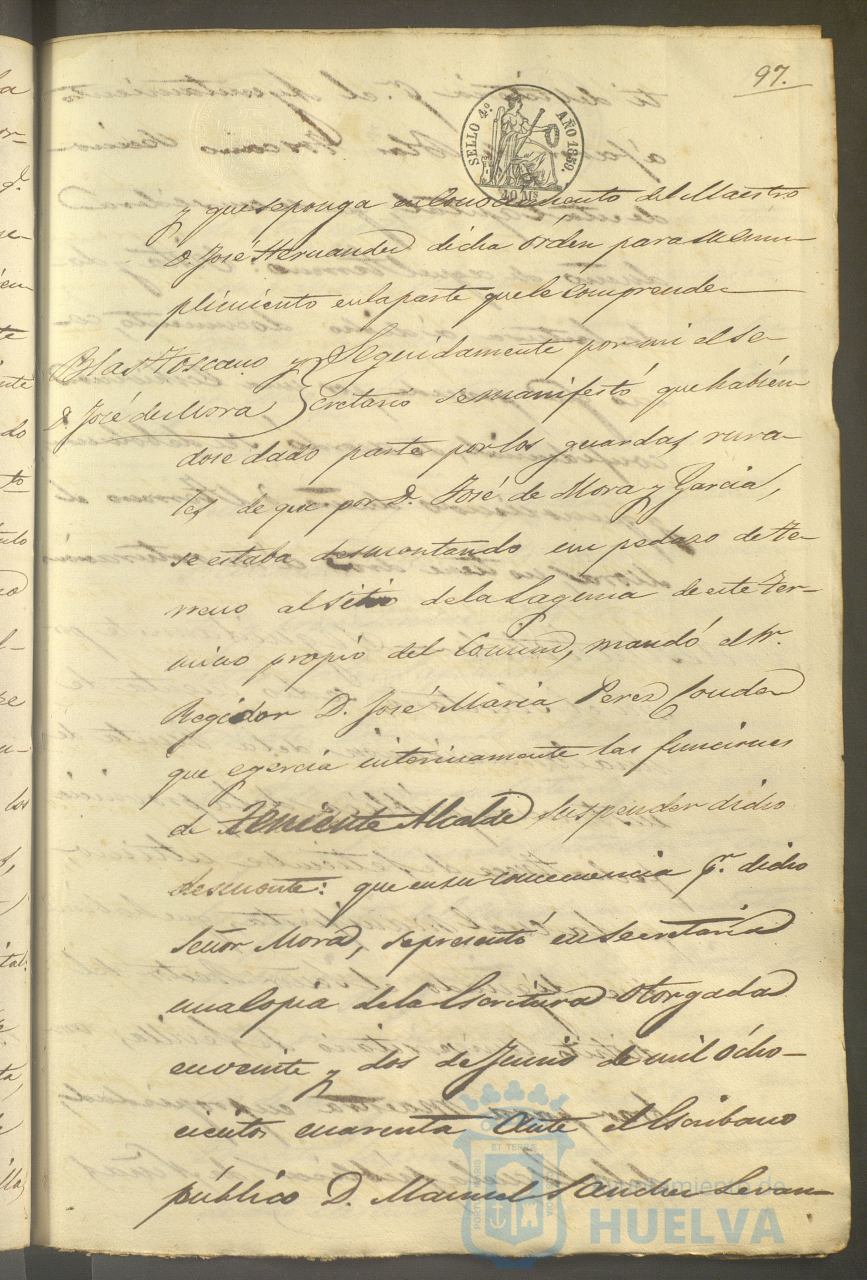 97.
SELLO 4.º AÑO 1859.
40 Ms
y que se ponga en conocimiento del Maestro
D. José Hernandez dicha órden para su cum-
plimiento en la parte que le comprende
Blas Toscano y
D. José de Mora
Seguidamente por mi el Se-
cretario se manifestó que habién-
dose dado parte por los guardas rura-
les de que por D. José de Mora y Garcia,
se estaba desmontando un pedazo de te-
rreno al sitio de la Laguna de este Ter-
mino propio del Comun, mandó el Sr.
Regidor D. José Maria Perez Conde
que egercia interinamente las funciones
de Teniente Alcalde suspender dicho
desmonte: que en su consecuencia p.r dicho
Señor Mora, se presentó en Secretaria
una copia de la Escritura otorgada
en veinte y dos de Junio de mil ócho-
cientos cuarenta ante el Escribano
público D. Manuel Sanchez Levan-
Ayuntamiento de
HUELVA